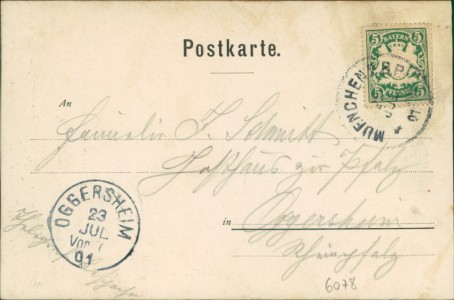 Postkarte.
BAYERN
5 5
5 PFENNIG 5
MUENCHEN B.P.
An
Familie F. Schmitt
Gasthaus zur Pfalz
in Oggersheim
Rheinpfalz
OGGERSHEIM
23
JUL
Vor
01
6078